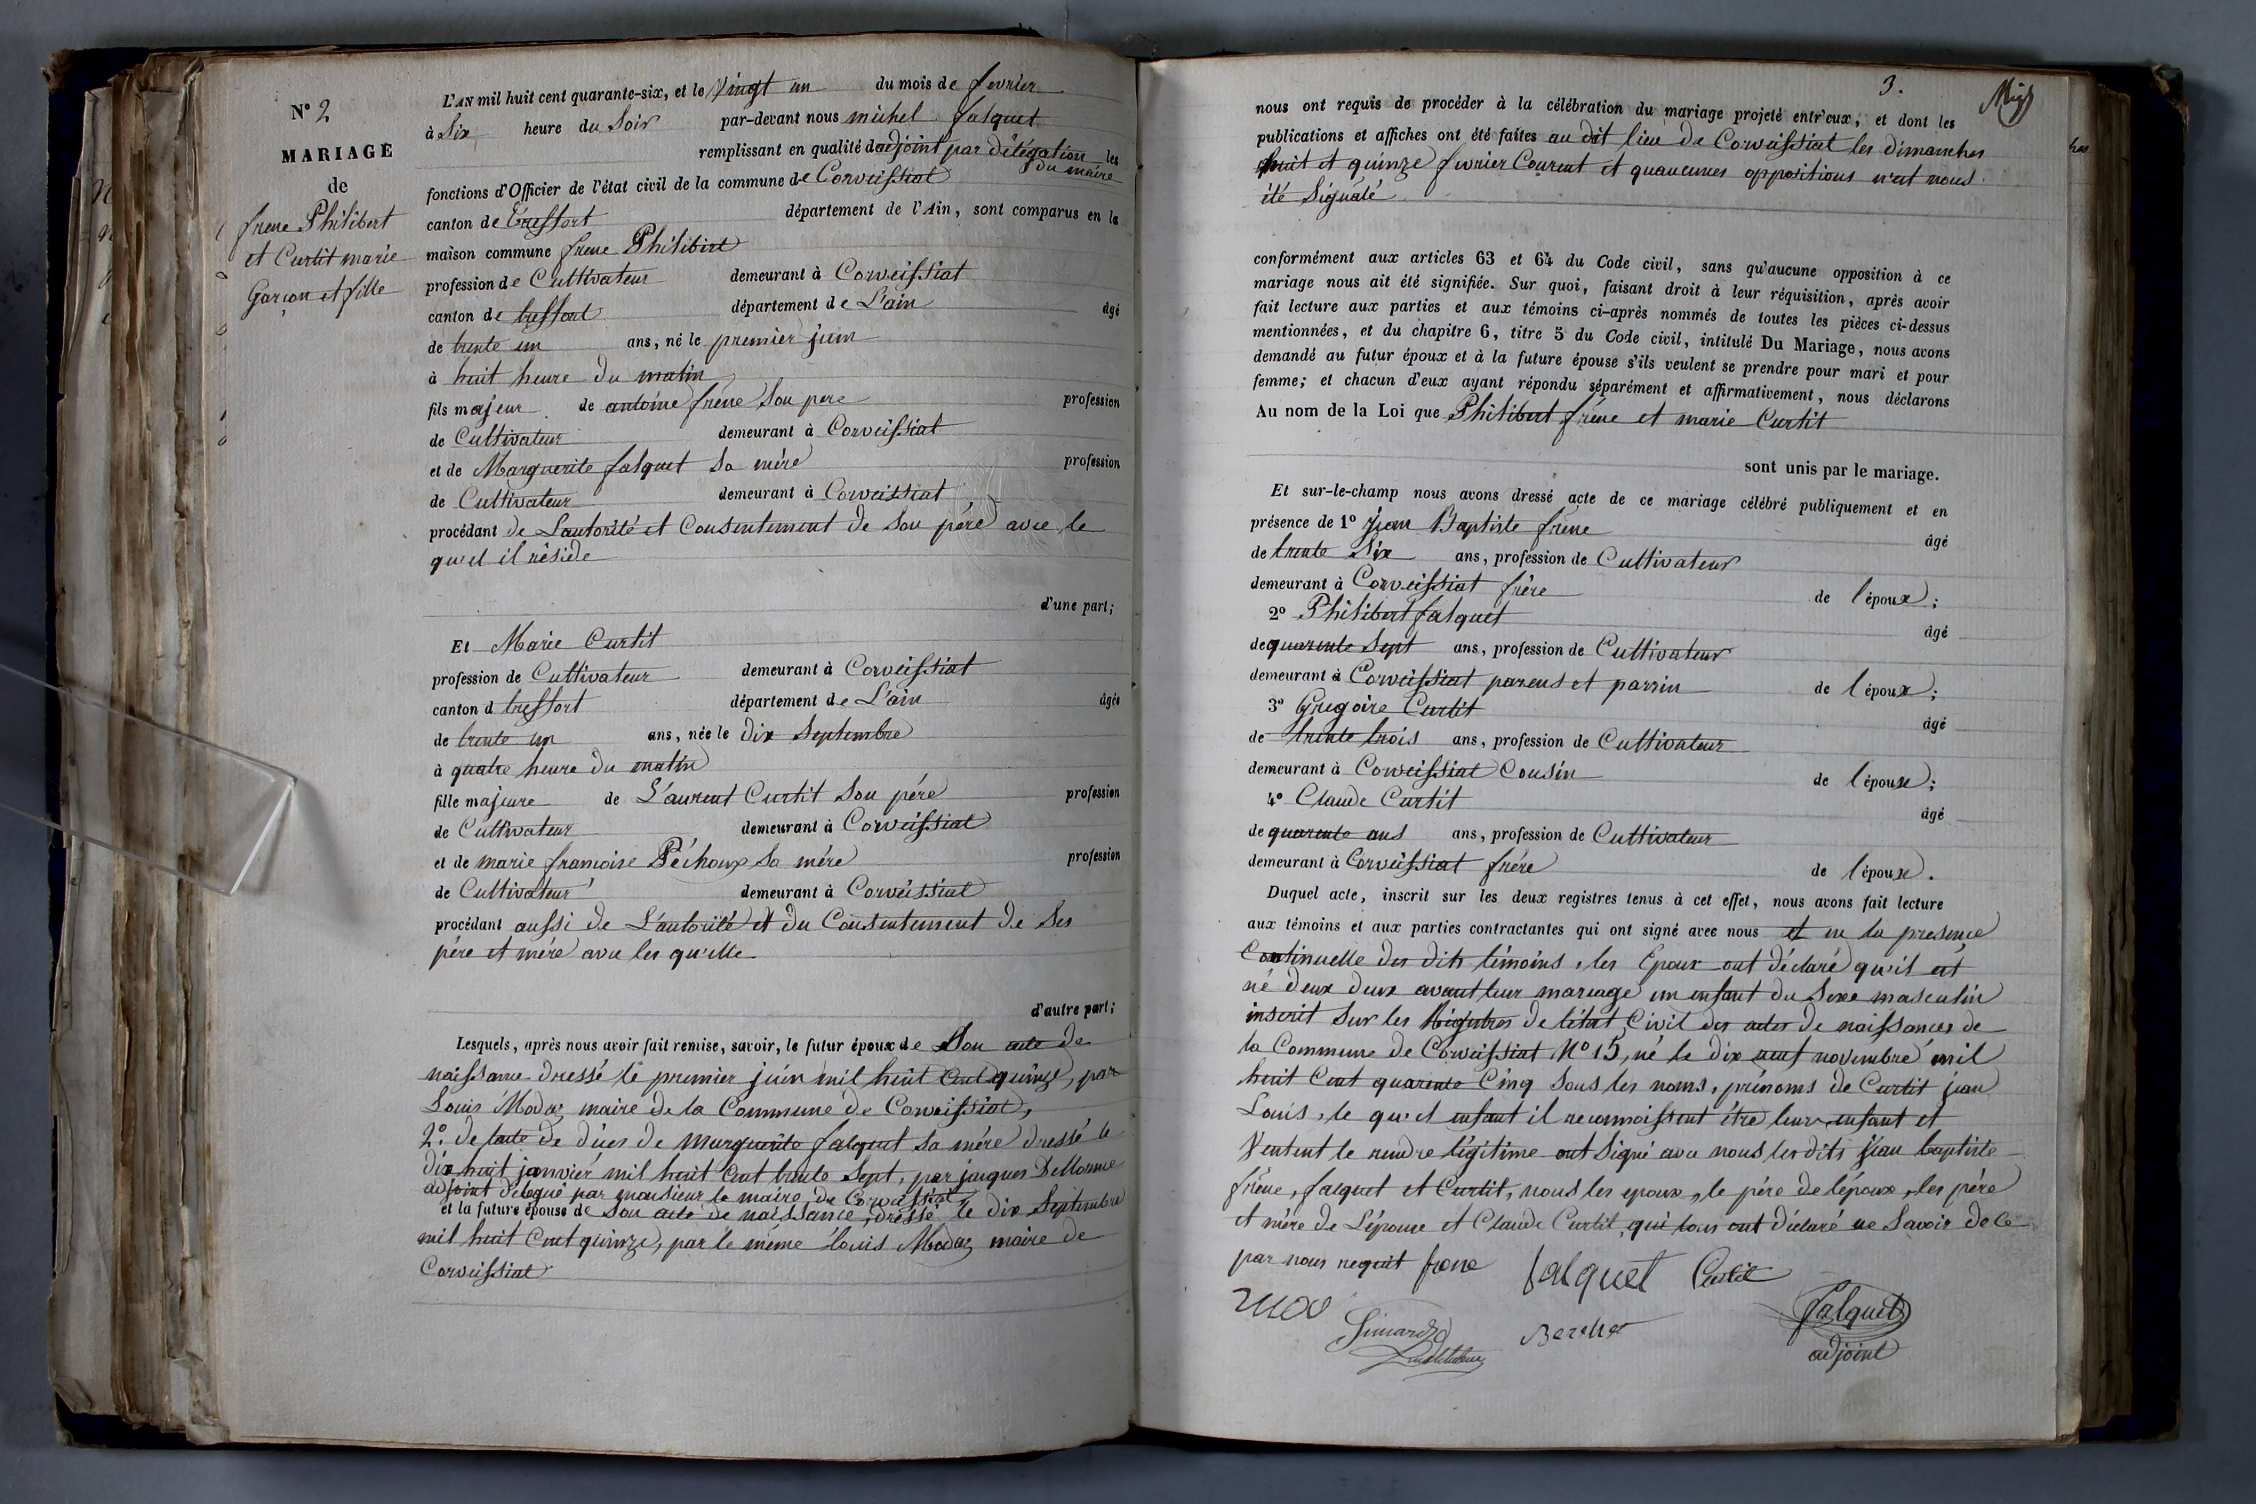 N° 2
MARIAGE
de
frene Philibert
et Curtit marie
Garçon et fille
L'AN mil huit cent quarante-six, et le Vingt un du mois de fevrier
à Six heure du Soir par-devant nous michel falquet
remplissant en qualité d'adjoint par délégation les
du maire
fonctions d'Officier de l'état civil de la commune de Corveissiat
canton de Treffort département de l'Ain, sont comparus en la
maison commune frene Philibert
profession de Cultivateur demeurant à Corveissiat
canton de treffort département de L'ain âgé
de trente un ans, né le premier juin
à huit heure du matin
fils majeur de antoine frene Son pere profession
de Cultivateur demeurant à Corveissiat
et de Marguerite falquet Sa mére profession
de Cultivateur demeurant à Corveissiat
procédant de L'autorité et Consentement de Son pére avec le
quel il réside
d'une part;
Et Marie Curtit
profession de Cultivateur demeurant à Corveissiat
canton d treffort département de L'ain âgée
de trente un ans, née le dix Septembre
à quatre heure du matin
fille majeure de L'aurent Curtit Son pére profession
de Cultivateur demeurant à Corveissiat
et de marie francoise Péchoux Sa mére profession
de Cultivateur demeurant à Corveissiat
procédant aussi de L'autorité et du Consentement de Ses
pére et mére avec les qu'elle
d'autre part;
Lesquels, après nous avoir fait remise, savoir, le futur époux de Son acte de
naissance dressé le premier juin mil huit Cent quinze, par
Louis Modaz maire de la Commune de Corveissiat,
2°. de lacte de dúes de Marguerite falquet Sa mére dressé le
dix huit janvier mil huit Cent trente Sept, par jacques Dellorme
adjoint délégué par monsieur le maire de Corveissiat
et la future épouse de Son acte de naissance, dressé le dix Septembre
mil huit Cent quinze, par le même Louis Modaz maire de
Corveissiat
3.
nous ont requis de procéder à la célébration du mariage projeté entr'eux, et dont les
publications et affiches ont été faites au dit lieu de Corveissiat les dimanches
huit et quinze fevrier Courent et quaucunes oppositions n'est nous
été Signalé
conformément aux articles 63 et 64 du Code civil, sans qu'aucune opposition à ce
mariage nous ait été signifiée. Sur quoi, faisant droit à leur réquisition, après avoir
fait lecture aux parties et aux témoins ci-après nommés de toutes les pièces ci-dessus
mentionnées, et du chapitre 6, titre 5 du Code civil, intitulé Du Mariage, nous avons
demandé au futur époux et à la future épouse s'ils veulent se prendre pour mari et pour
femme; et chacun d'eux ayant répondu séparément et affirmativement, nous déclarons
Au nom de la Loi que Philibert frene et marie Curtit
sont unis par le mariage.
Et sur-le-champ nous avons dressé acte de ce mariage célébré publiquement et en
présence de 1° jean Baptiste frene âgé
de trente Six ans, profession de Cultivateur
demeurant à Corveissiat frére de l'époux;
2° Philibert falquet âgé
de quarente Sept ans, profession de Cultivateur
demeurant à Corveissiat parens et parrin de l'époux;
3° Gregoire Curtit âgé
de trente trois ans, profession de Cultivateur
demeurant à Corveissiat Cousin de l'épouse;
4° Claude Curtit âgé
de quarente ans ans, profession de Cultivateur
demeurant à Corveissiat frére de l'épouse.
Duquel acte, inscrit sur les deux registres tenus à cet effet, nous avons fait lecture
aux témoins et aux parties contractantes qui ont signé avec nous et en la presence
Continuelle des dits témoins, les Epoux ont déclaré qu'il est
né deux deux avant leur mariage un enfant du Sexe masculin
inscrit Sur les Régistres de l'état Civil des actes de naissances de
la Commune de Corveissiat N° 15, né le dix neuf novembre mil
huit Cent quarente Cinq Sous les noms, prénoms de Curtit jean
Louis, le quel enfant il reconnoissent être leur enfant et
Veulent le rendre légitime ont Signé avec nous les dits jean baptiste
frène, falquet et Curtit, nous les epoux, le pére de l'époux, les pére
et mére de L'épouse et Claude Curtit qui tous ont déclaré ne Savoir de ce
par nous requit frene falquet Curtit
Falquet
Berchet
adjoint